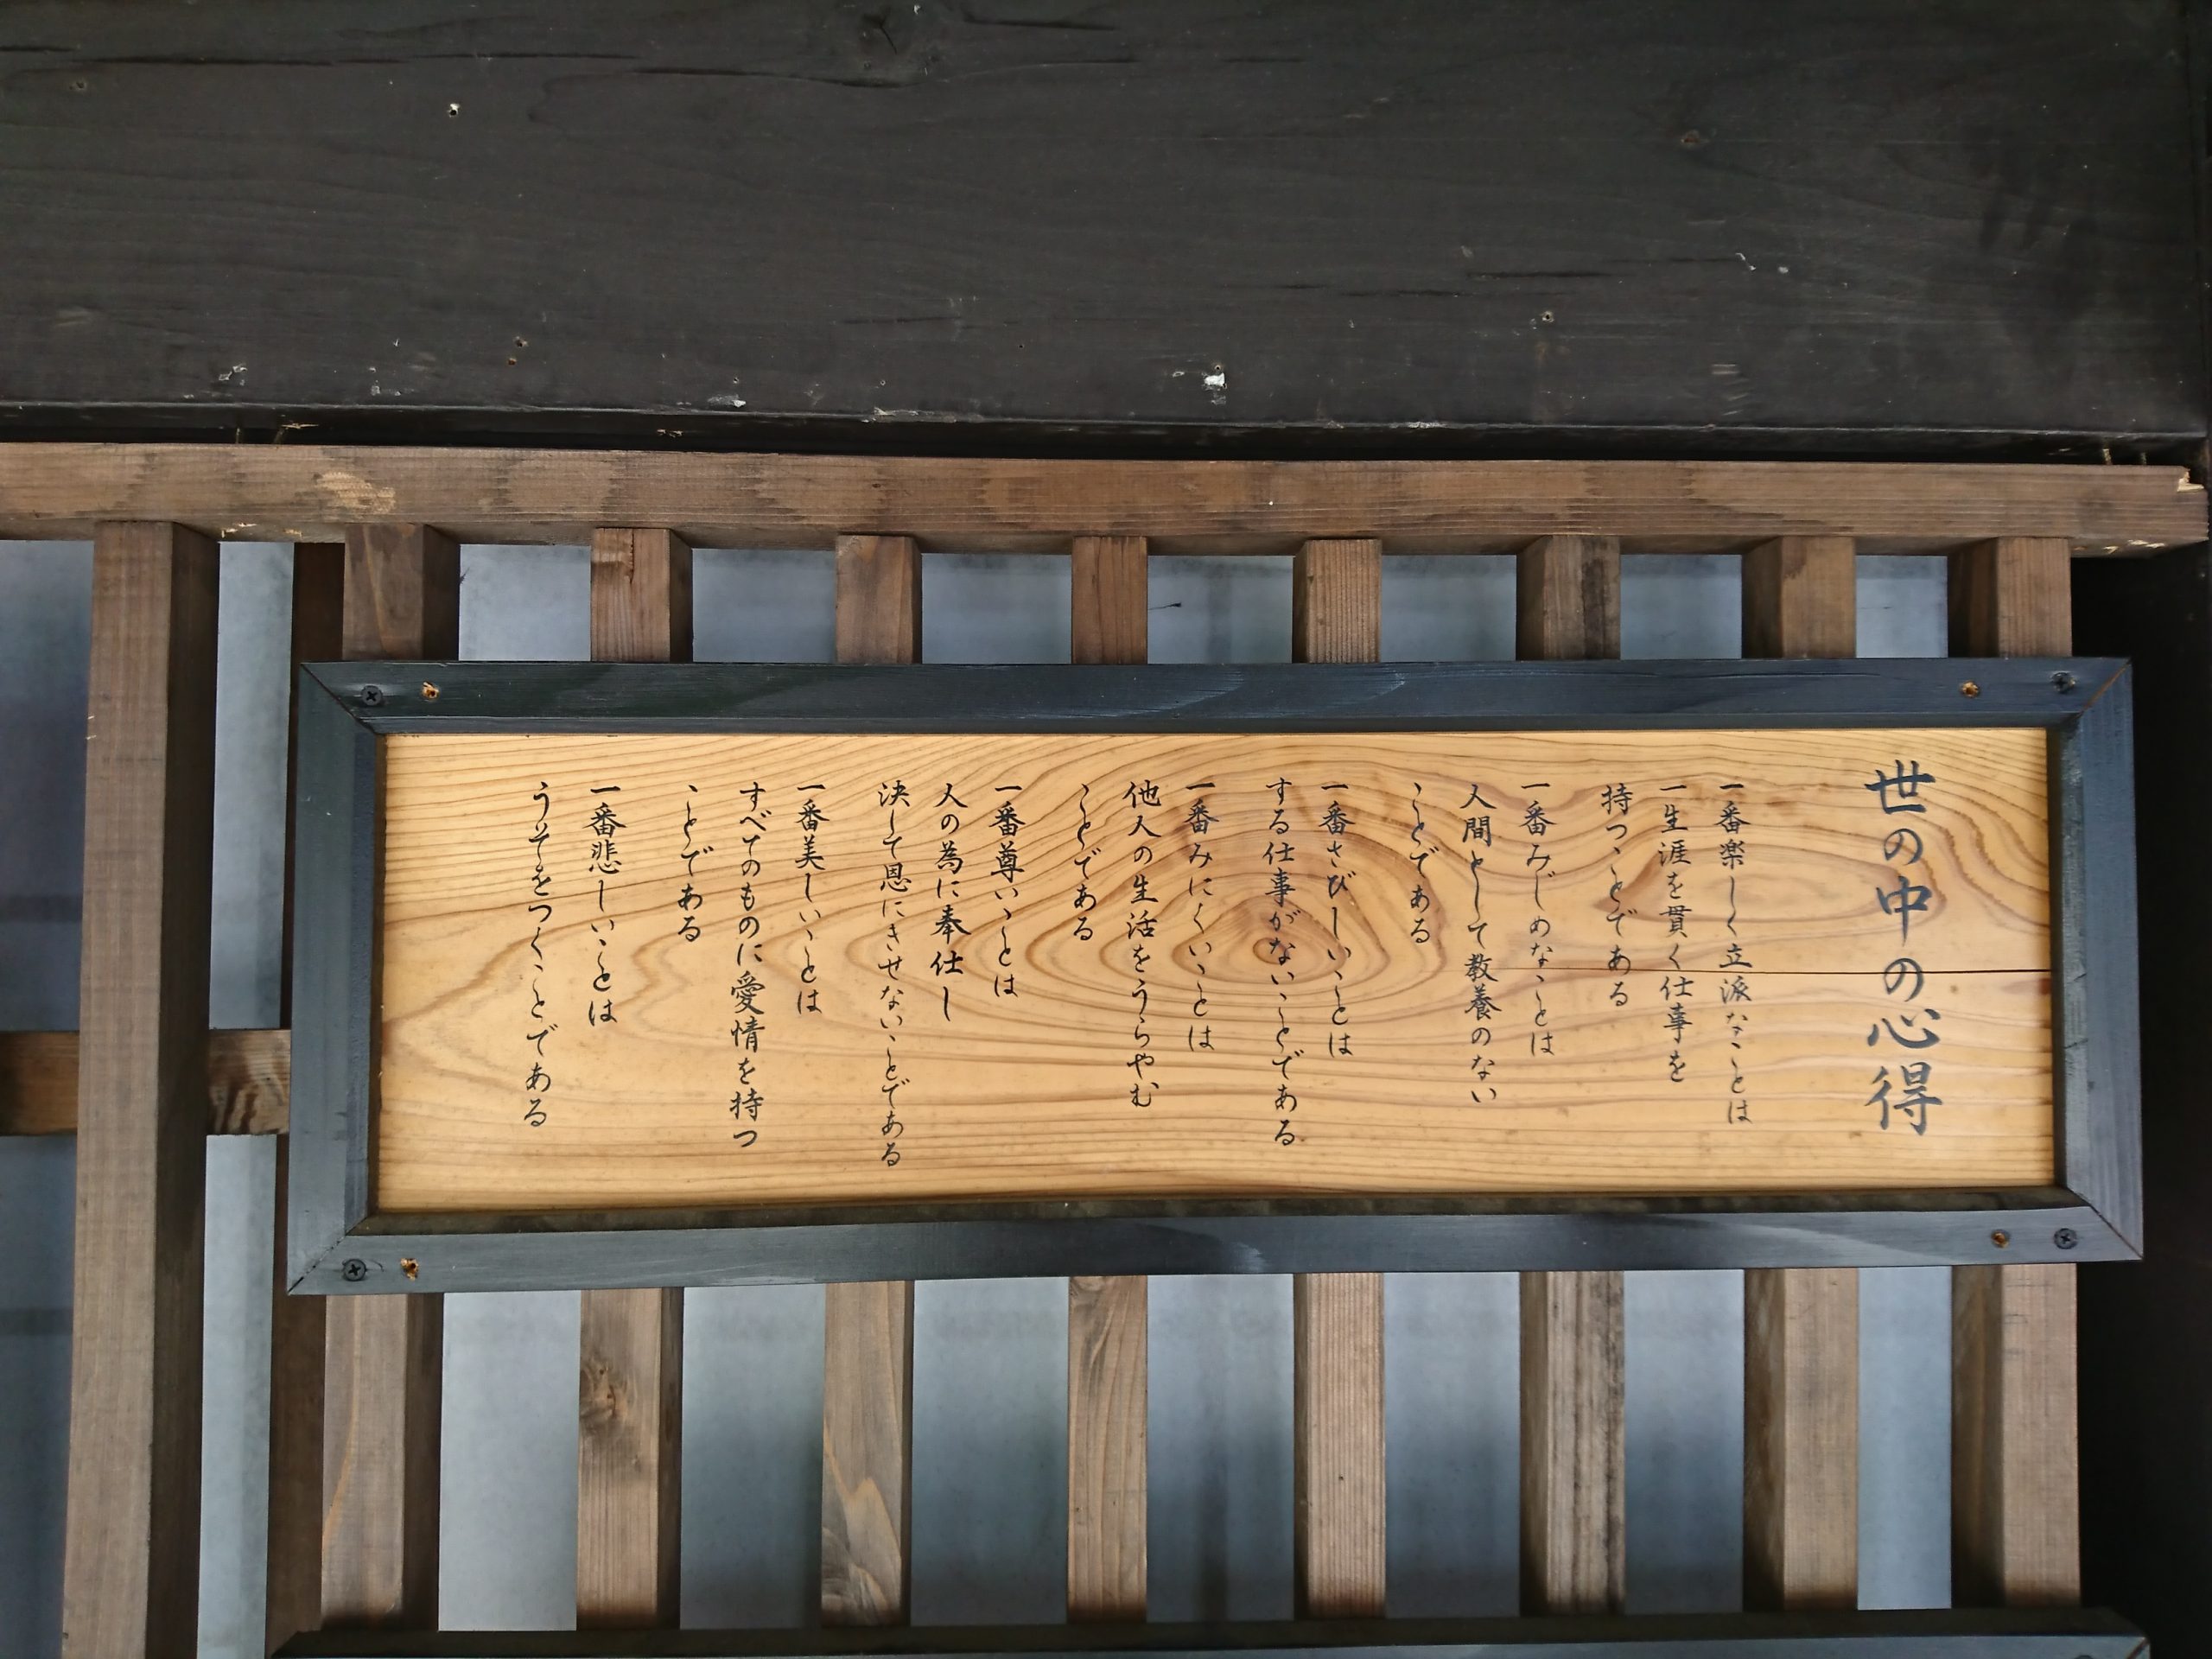 世の中の心得
一番楽しく立派なことは
一生涯を貫く仕事を
持つことである
一番みじめなことは
人間として教養のない
ことである
一番さびしいことは
する仕事がないことである
一番みにくいことは
他人の生活をうらやむ
ことである
一番尊いことは
人の為に奉仕し
決して恩にきせないことである
一番美しいことは
すべてのものに愛情を持つ
ことである
一番悲しいことは
うそをつくことである